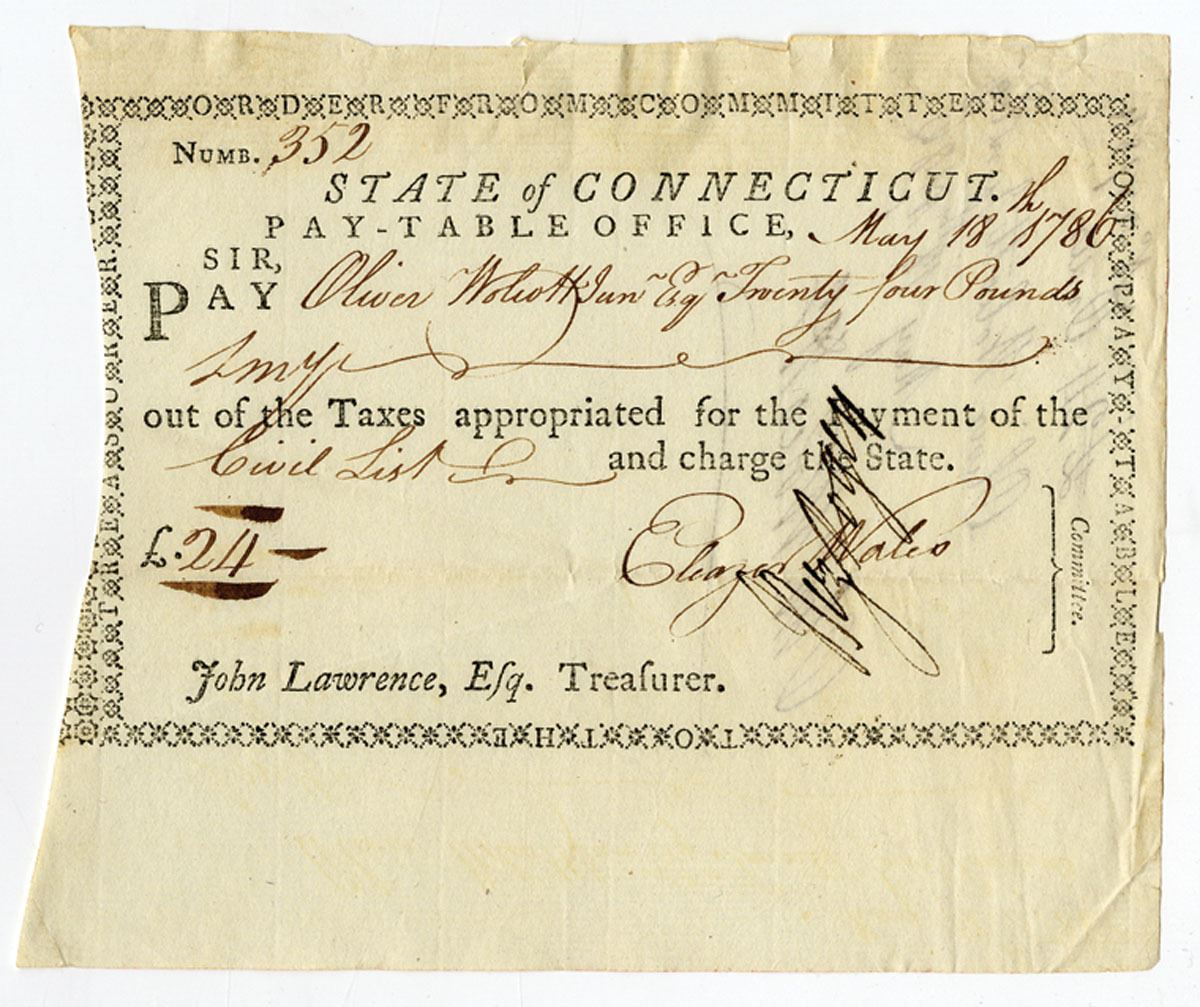 ORDER FROM COMMITTEE
TO PAY-TABLE
TO THE
TREASURER.
NUMB. 352
STATE of CONNECTICUT.
PAY-TABLE OFFICE, May 18th 1786
SIR,
PAY Oliver Wolcott Junr Esqr Twenty four Pounds
Lmy
out of the Taxes appropriated for the Payment of the
Civil List and charge the State.
£.24
Eleazer Wales
Committee.
John Lawrence, Eſq. Treaſurer.